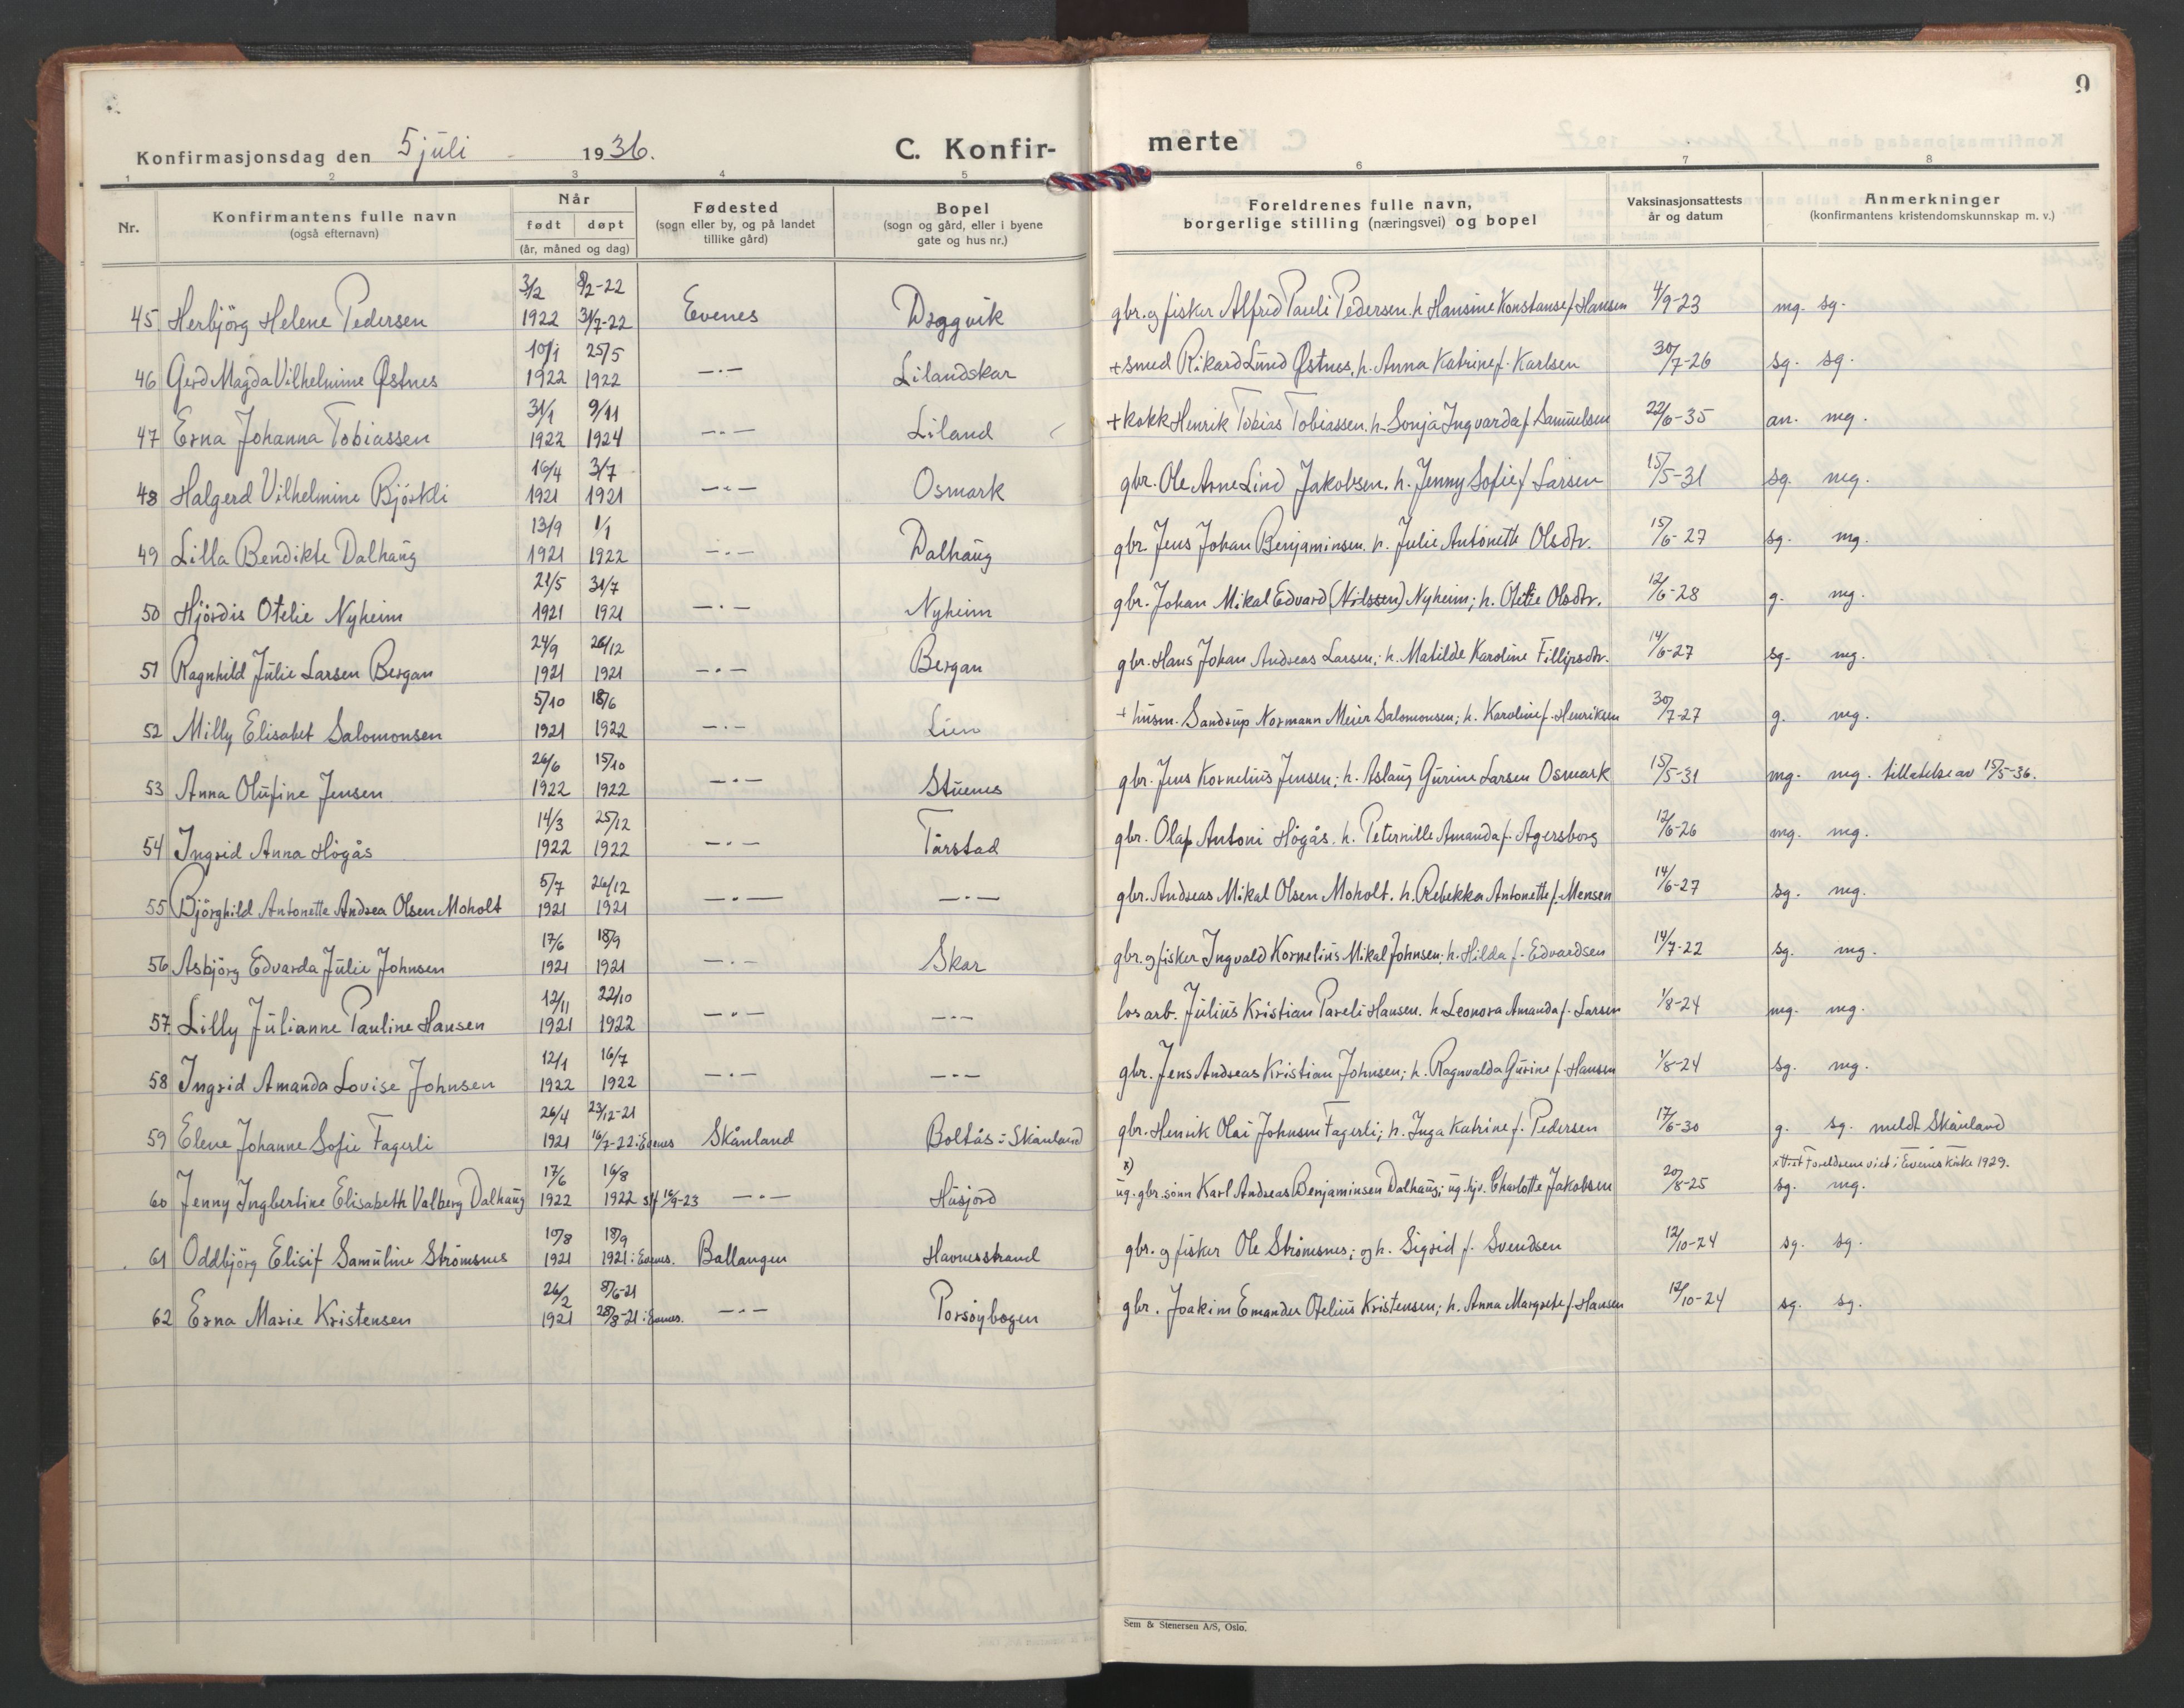 9
Konfirmasjonsdag den 5 juli 1936. C. Konfirmerte
1 2 3 4 5 6 7 8
Nr. Konfirmantens fulle navn (også efternavn) Når født døpt (år, måned og dag) Fødested (sogn eller by, og på landet tillike gård) Bopel (sogn og gård, eller i byene gate og hus nr.) Foreldrenes fulle navn, borgerlige stilling (næringsvei) og bopel Vaksinasjonsattests år og datum Anmerkninger (konfirmantens kristendomskunnskap m. v.)
45 Herbjörg Helene Pedersen 3/2 1922 8/2-22 31/7-22 Evenes Dragvik gbr. og fisker Alfred Pareli Pedersen. h. Hansine Konstanse f. Hansen 4/9-23 mg. sg.
46 Gerd Magda Vilhelmine Østnes 10/1 1922 25/5 1922 —·— Lilandskar + smed Rikard Lund Østnes, h. Anna Katrine f. Karlsen 30/7-26 sg. sg.
47 Erna Johanna Tobiassen 31/1 1922 9/11 1924 —·— Liland + kokk Henrik Tobias Tobiassen. h. Sonja Ingvarda f. Samuelsen 22/6-35 an. mg.
48 Halgerd Vilhelmine Björkli 16/4 1921 3/7 1921 —·— Osmark gbr. Ole Arne Lind Jakobsen. h. Jenny Sofie f. Larsen 15/5-31 sg. mg.
49 Lilla Bendikte Dalhaug 13/9 1921 1/1 1922 —·— Dalhaug gbr. Jens Johan Benjaminsen. h. Julie Antonette Olsdtr. 15/6-27 sg. mg.
50 Hjördis Otelie Nyheim 21/5 1921 31/7 1921 —·— Nyheim gbr. Johan Mikal Edvard (Nilssen) Nyheim; h. Otelie Olsdtr. 12/6-28 g. mg.
51 Ragnhild Julie Larsen Bergan 24/9 1921 26/12 1921 —·— Bergan gbr. Hans Johan Andreas Larsen; h. Matilde Karoline Fillipsdtr. 14/6-27 sg. mg.
52 Milly Elisabet Salomonsen 5/10 1921 18/6 1922 —·— Lien + husm. Sandrup Normann Meier Salomonsen; h. Karoline f. Henriksen 30/7-27 g. mg.
53 Anna Olufine Jensen 26/6 1922 15/10 1922 —·— Stuenes gbr. Jens Kornelius Jensen; h. Aslaug Gurine Larsen Osmark 15/5-31 mg. mg. tillatelse av 15/5-36.
54 Ingrid Anna Högås 14/3 1922 25/12 1922 —·— Tårstad gbr. Olap Antoni Högås. h. Peternille Amanda f. Agersborg 12/6-26 mg. mg.
55 Björghild Antonette Andrea Olsen Moholt 5/7 1921 26/12 1921 —·— —·— gbr. Andreas Mikal Olsen Moholt. h. Rebekka Antonette f. Mensen 14/6-27 sg. mg.
56 Asbjörg Edvarda Julie Johnsen 17/6 1921 18/9 1921 —·— Skar gbr. og fisker Ingvald Kornelius Mikal Johnsen; h. Hilda f. Edvardsen 14/7-22 sg. mg.
57 Lilly Julianne Pauline Hansen 12/11 1921 22/10 1922 —·— —·— los arb. Julius Kristian Pareli Hansen. h. Leonora Amanda f. Larsen 1/8-24 mg. mg.
58 Ingrid Amanda Lovise Johnsen 12/1 1922 16/7 1922 —·— —·— gbr. Jens Andreas Kristian Johnsen; h. Ragnvalda Gurine f. Hansen 1/8-24 sg. mg.
59 Elene Johanne Sofie Fagerli 26/4 1921 23/12-21 16/7-22 i Evenes Skånland Boltås i Skånland gbr. Henrik Olai Johnsen Fagerli; h. Inga Katrine f. Pedersen 17/6-30 g. sg. meldt Skånland
60 Jenny Ingbertine Elisabeth Valberg Dalhaug 17/6 1922 16/8 1922 stf 16/9-23 —·— Husjord x) ug. gbr. sönn Karl Andreas Benjaminsen Dalhaug; ug. hjv. Charlotte Jakobsen 20/8-25 sg. mg. x Vist Foreldrene viet i Evenes kirke 1929.
61 Oddbjörg Elisif Samuline Strömsnes 10/8 1921 18/9 1921 i Evenes. Ballangen Havnesstrand gbr. og fisker Ole Strömsnes; og h. Sigrid f. Svendsen 12/10-24 sg. sg.
62 Erna Marie Kristensen 26/2 1921 8/6-21 28/8-21 i Evenes. —·— Porsöybogen gbr. Joakim Emander Otelius Kristensen; h. Anna Margrete f. Hansen 12/10-24 sg. sg.
Sem & Stenersen A/S, Oslo.